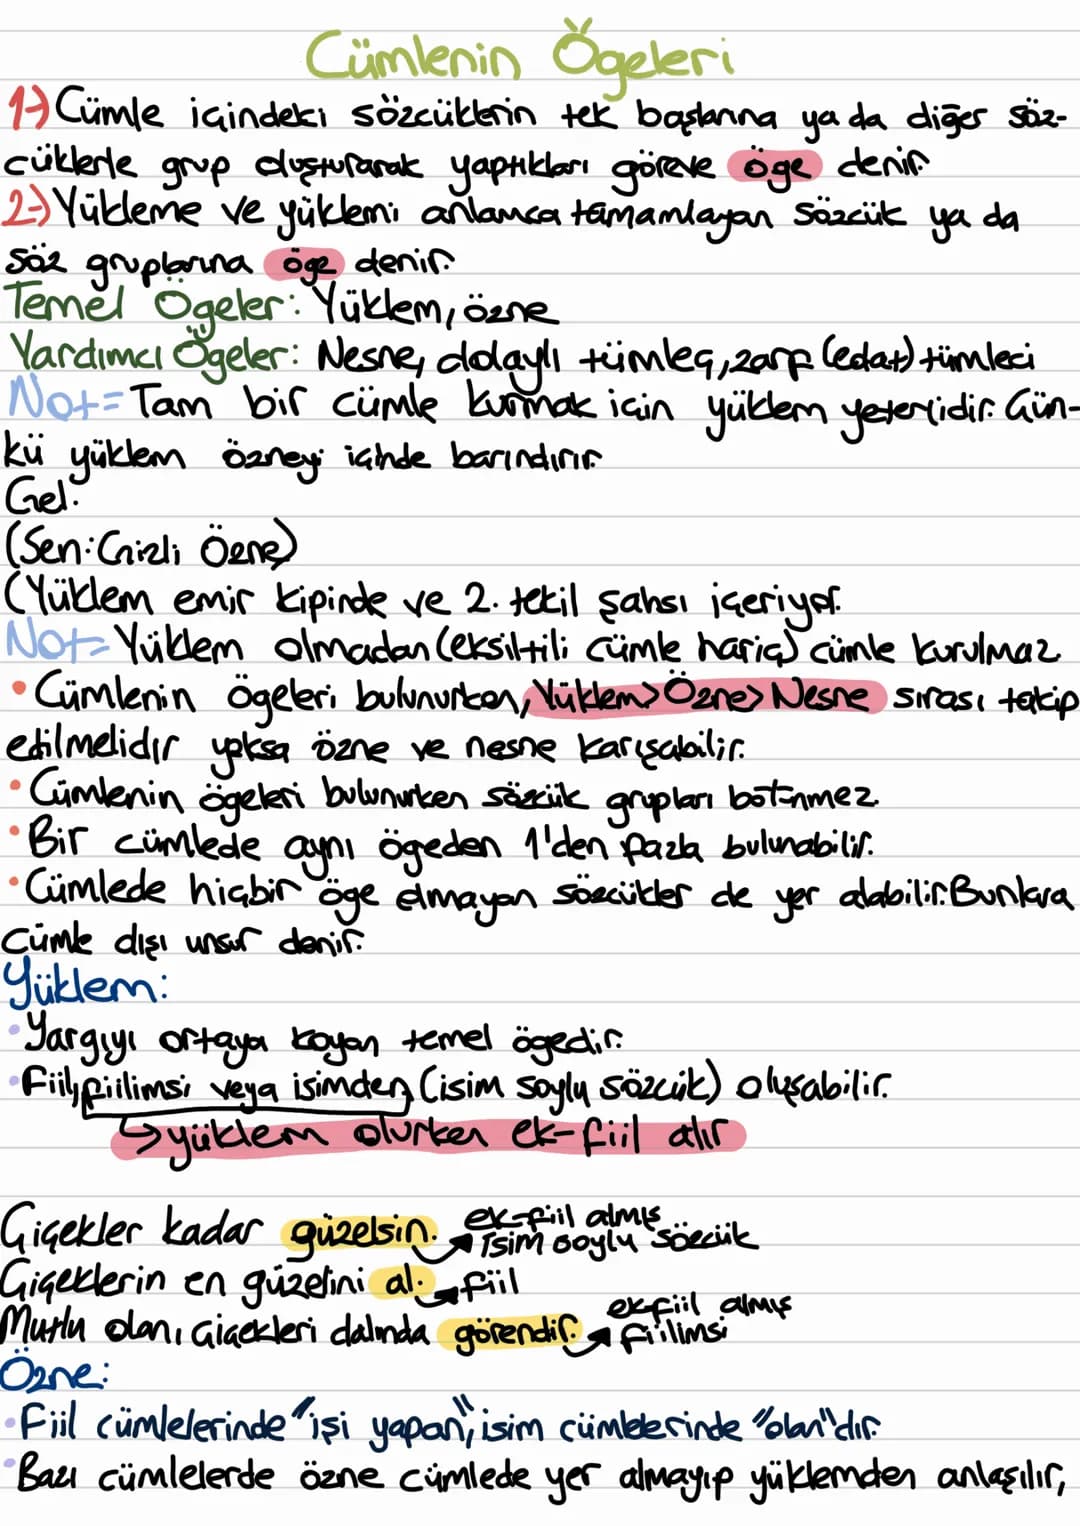 Cümlenin Ögeleri
1-) Cümle içindeki sözcüklerin tek başlarına ya da diğer söz-
cüklerle grup oluşturarak yaptıkları göreve öge denir.
2-) Yükleme ve yüklemi anlamca tamamlayan sözcük ya da
söz gruplarına öge denir.
Temel Ögeler: Yüklem, özne
Yardımcı Ögeler: Nesne, dolaylı tümleç, zarf (edat) tümleci
Not= Tam bir cümle kurmak için yüklem yeterlidir. Çün-
kü yüklem özneyi içinde barındırır.
Gel.
(Sen: Gizli Özne)
(Yüklem emir kipinde ve 2. tekil şahsı içeriyor.
Not= Yüklem olmadan (eksiltili cümle hariç) cümle kurulmaz.
• Cümlenin ögeleri bulunurken, Yüklem> Özne> Nesne sırası takip
edilmelidir yoksa özne ve nesne karışabilir.
• Cümlenin ögeleri bulunurken sözcük grupları bölünmez.
• Bir cümlede aynı ögeden 1'den fazla bulunabilir.
• Cümlede hiçbir öge olmayan sözcükler de yer alabilir. Bunlara
cümle dışı unsur denir.
Yüklem:
• Yargıyı ortaya koyan temel ögedir.
• Fiil, fiilimsi veya isimden (isim soylu sözcük) oluşabilir.
↳ yüklem olurken ek-fiil alır
Çiçekler kadar güzelsin. ek-fiil almış
isim soylu sözcük
Çiçeklerin en güzelini al. fiil
Mutlu olan, çiçekleri dalında görendir. ekfiil almış
fiilimsi
Özne:
• Fiil cümlelerinde "işi yapan", isim cümlelerinde "olan"dır.
• Bazı cümlelerde özne cümlede yer almayıp yüklemden anlaşılır,